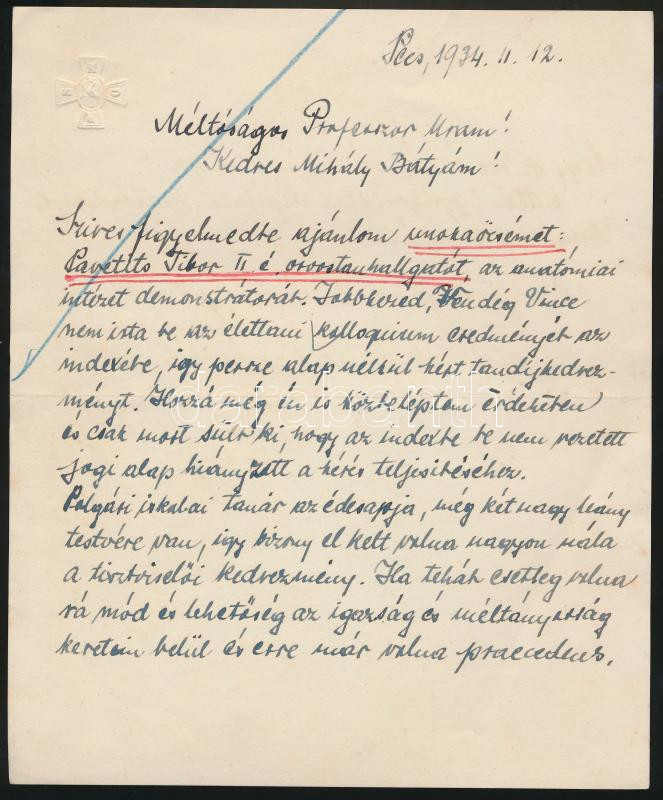 Pécs, 1934. II. 12.
Méltóságos Professzor Uram!
Kedves Mihály Bátyám!
Szives figyelmedbe ajánlom unokaöcsémet:
Pavetits Tibor II. é. orvostanhallgatót, az anatómiai
intézet demonstrátorát. Jobbkezed, Vendég Vince
nem irta be az élettani kolloquium eredményét az
indexébe, igy persze alap nélkül kért tandijkedvez-
ményt. Hozzá még én is közbeléptem érdekében
és csak most sült ki, hogy az indexbe be nem vezetett
jogi alap hiányzott a kérés teljesitéséhez.
Polgári iskolai tanár az édesapja, még két nagy leány
testvére van, igy bizony el kelt volna nagyon nála
a tisztviselői kedvezmény. Ha tehát esetleg volna
rá mód és lehetőség az igazság és méltányosság
keretein belül és erre már volna praecedens,
darabanth